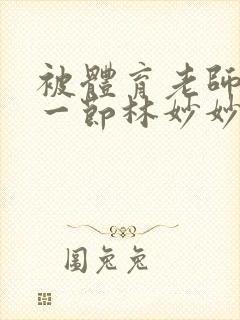 被體育老師
一節林妙妙
圓兔兔